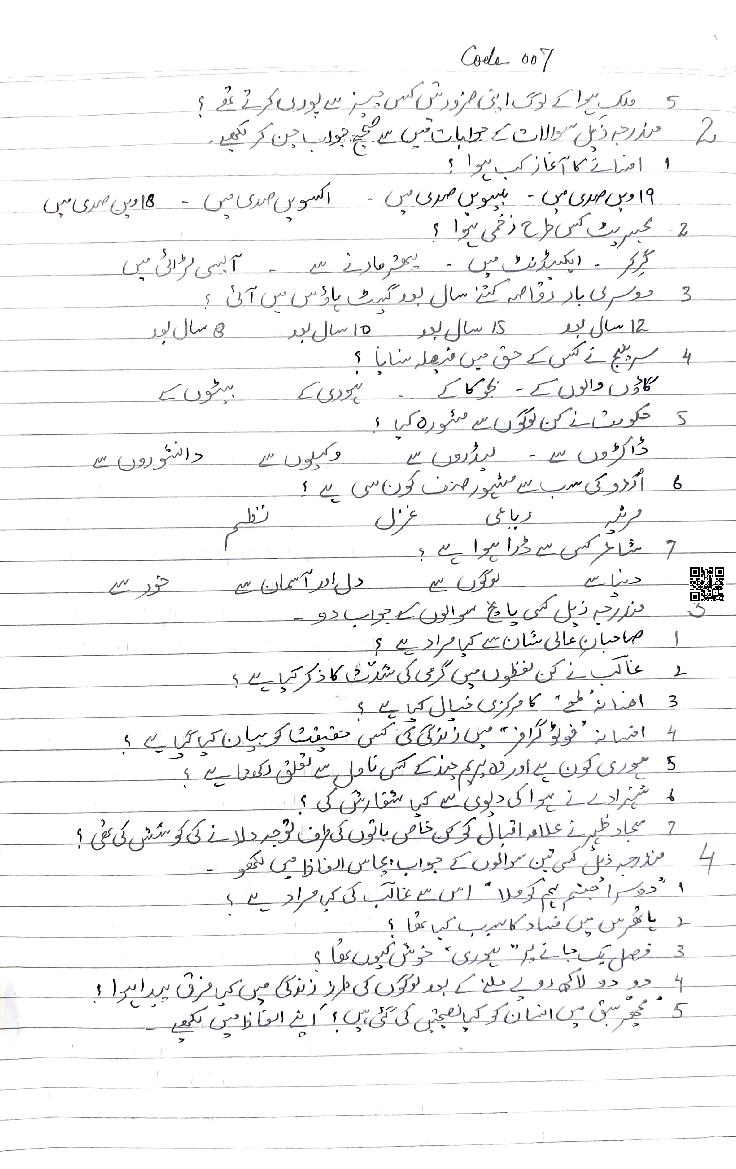 Code 007
5 ملک ہوا کے لوگ اپنی ضرورتیں کس چیز سے پوری کرتے تھے ؟
2 مندرجہ ذیل سوالات کے جوابات میں سے صحیح جواب چن کر لکھیے۔
1 افسانے کا آغاز کب ہوا ؟
19ویں صدی میں - بیسویں صدی میں - اکسویں صدی میں - 18ویں صدی میں
2 کس طرح زخمی ہوا ؟
گر کر - ایکسیڈنٹ میں - پتھر مارنے سے - آپسی لڑائی میں
3 دوسری بار رقاصہ کتنے سال بعد گیسٹ ہاؤس میں آئی ؟
12 سال بعد 15 سال بعد 10 سال بعد 8 سال بعد
4 سرپنچ نے کس کے حق میں فیصلہ سنایا ؟
گاؤں والوں کے - بجوکا کے - ہوری کے بیٹوں کے
5 حکومت نے کن لوگوں سے مشورہ کیا ؟
ڈاکٹروں سے - لیڈروں سے وکیلوں سے دانشوروں سے
6 اُردو کی سب سے مشہور صنف کون سی ہے ؟
مرثیہ رباعی غزل نظم
7 شاعر کس سے ڈرا ہوا ہے ؟
دنیا سے لوگوں سے دل اور آسمان سے خود سے
3 مندرجہ ذیل کسی پانچ سوالوں کے جواب دو -
1 صاحبان عالی شان سے کیا مراد ہے ؟
2 غالب نے کن لفظوں میں گرمی کی شدّت کا ذکر کیا ہے ؟
3 افسانہ "لمحے" کا مرکزی خیال کیا ہے ؟
4 افسانہ "فوٹو گرافر" میں زندگی کی کس حقیقت کو بیان کیا گیا ہے ؟
5 ہوری کون ہے اور وہ پریم چند کے کس ناول سے تعلق رکھتا ہے ؟
6 شہزادے نے ہوا کی دیوی سے کیا سفارش کی ؟
7 سجاد ظہیر نے علامہ اقبال کو کن خاص باتوں کی طرف توجہ دلانے کی کوشش کی تھی ؟
4 مندرجہ ذیل کسی تین سوالوں کے جواب پچاس الفاظ میں لکھو -
1 "دوسرا جنم ہم کو ملا" اس سے غالب کی کیا مراد ہے ؟
2 میں فساد کا سبب کیا تھا ؟
3 فصل پک جانے پر "ہوری" خوش کیوں تھا ؟
4 دو دو لاکھ روپے ملنے کے بعد لوگوں کی طرز زندگی میں کیا فرق پیدا ہوا ؟
5 "مچھر" سبق میں انسان کو کیا نصیحتیں کی گئی ہیں ؟ اپنے الفاظ میں لکھیے -